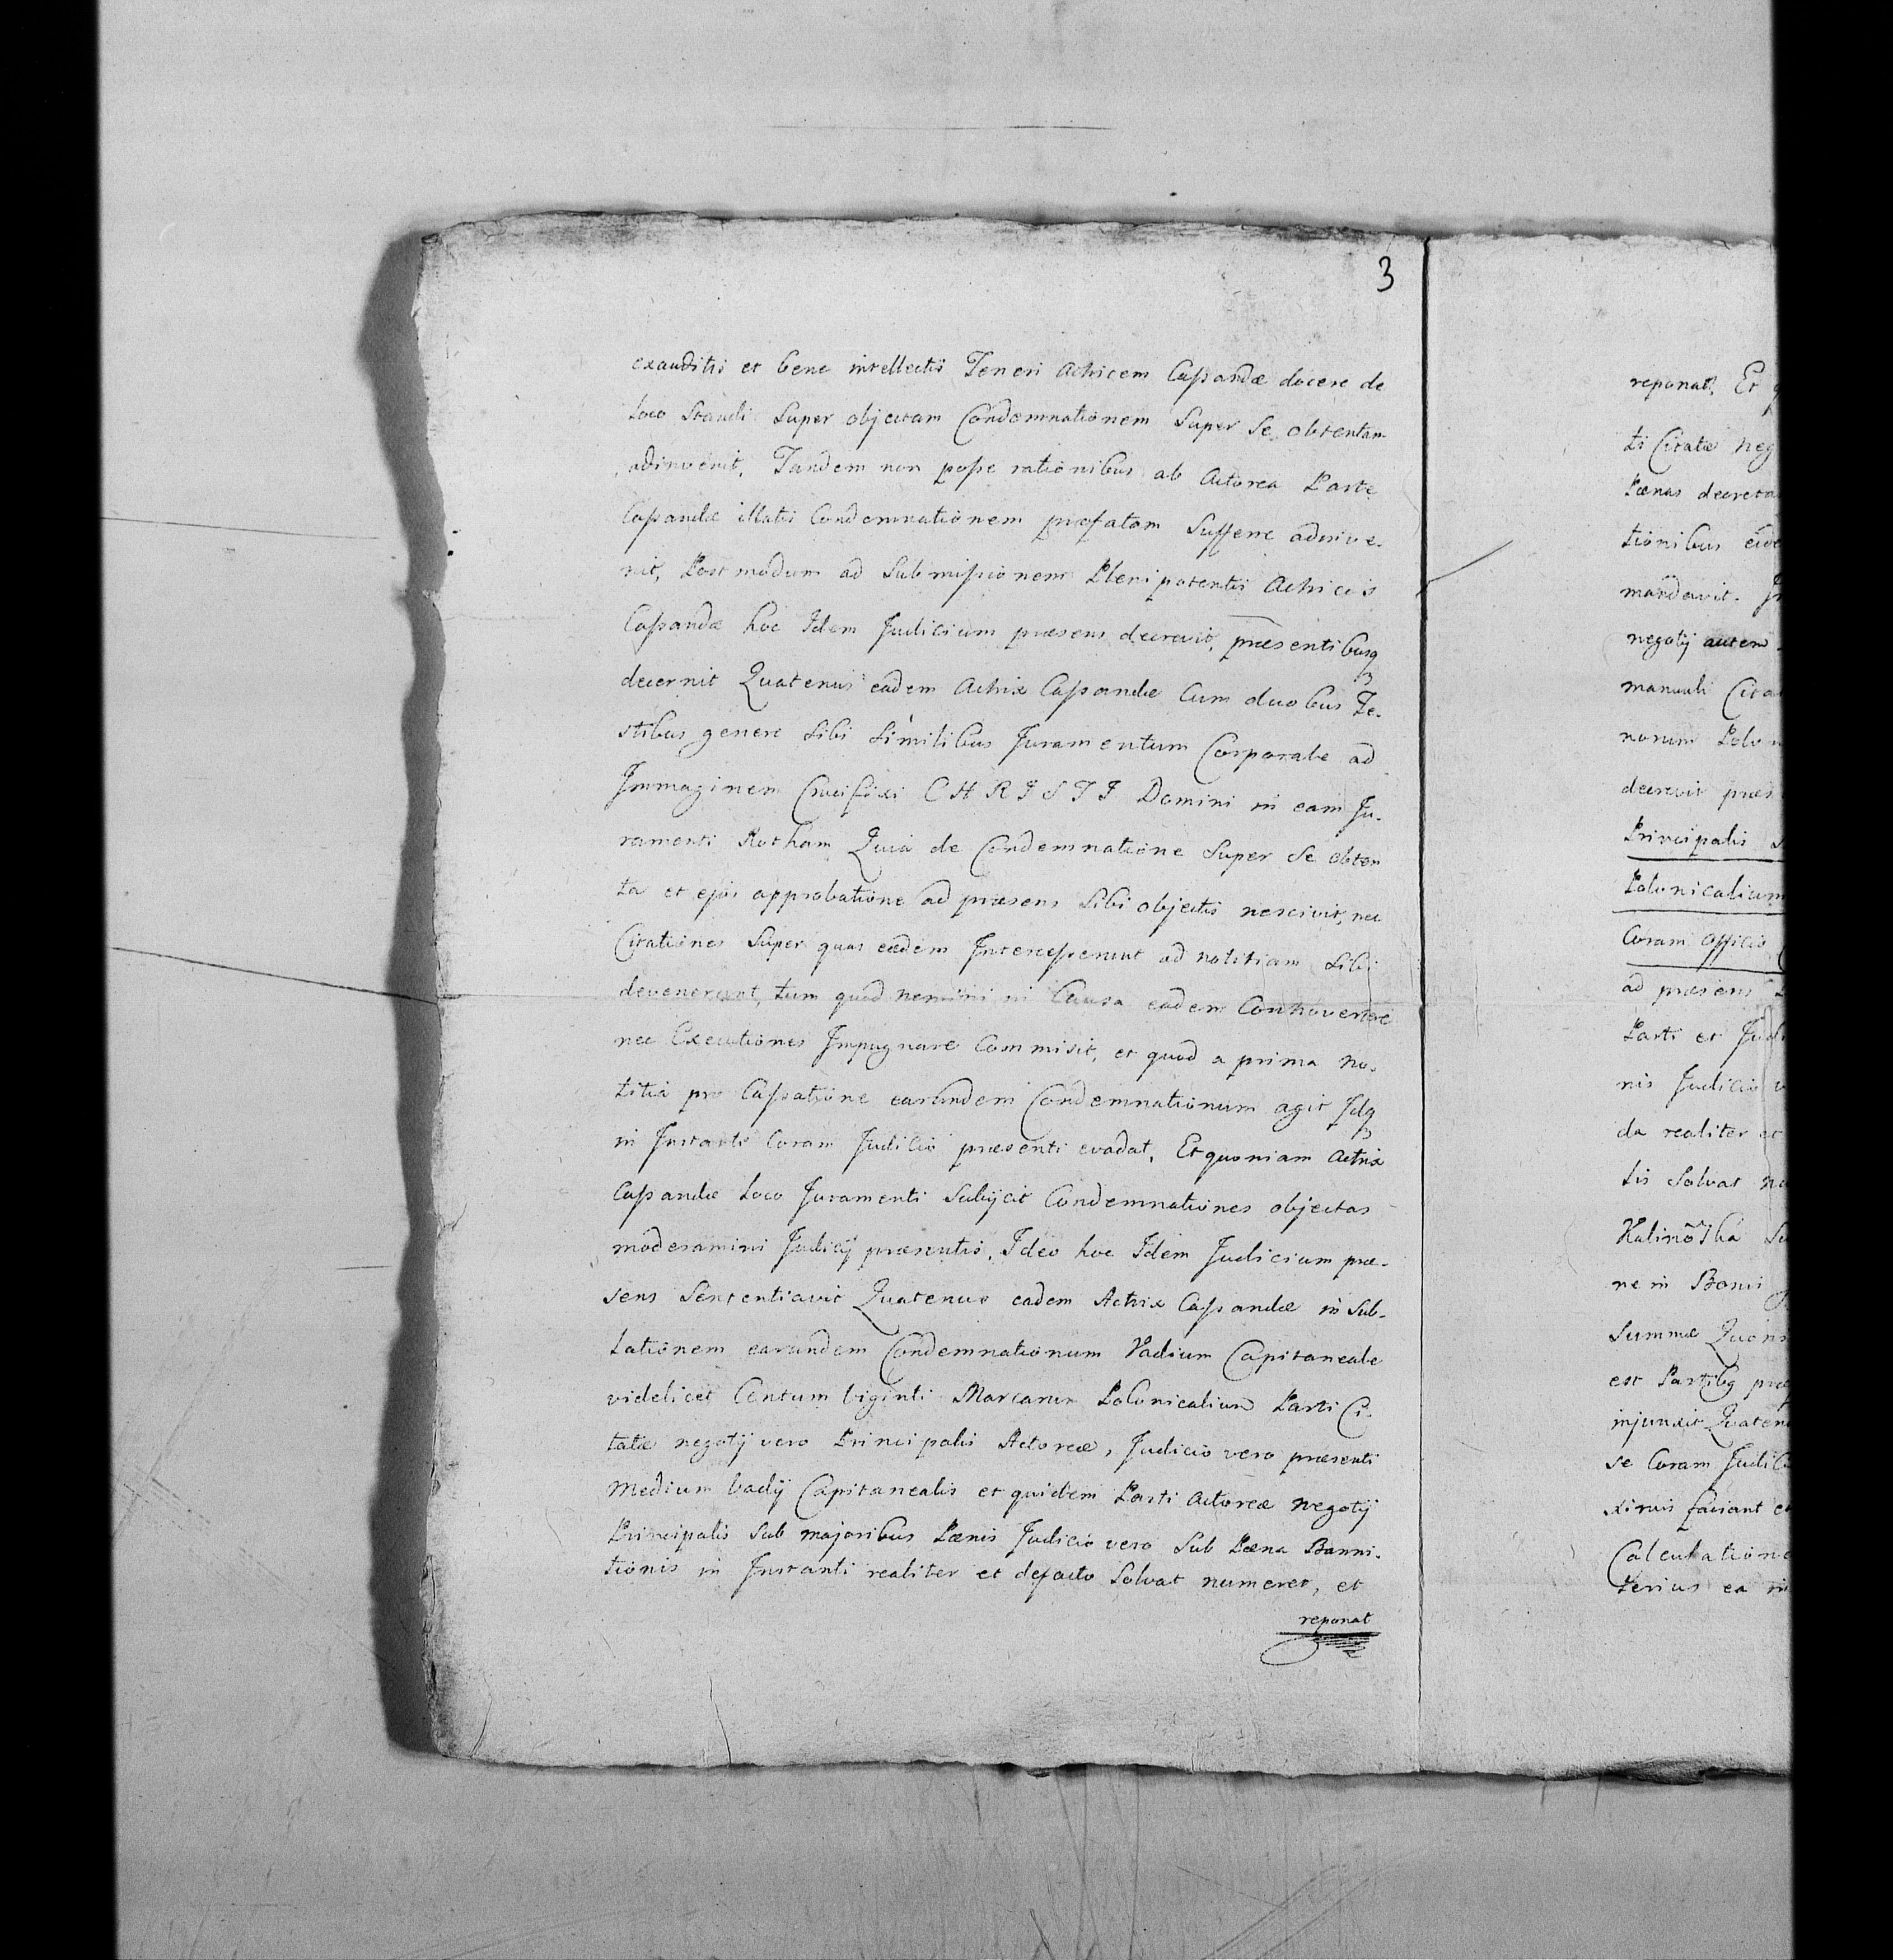 3
exauditis et bene intellectis Teneri Actricem Cassandæ docere de
Loco Standi Super objectam Condemnationem Super Se obtentam
adinvenit, Tandem non posse rationibus ab Actorea Parte
Cassandæ illatis Condemnationem præfatam Sufferre adinve-
nit, Postmodum ad Submissionem Plenipotentis Actricis
Cassandæ hoc Idem Judicium præsens decrevit, præsentibusq3
decernit Quatenus eadem Actrix Cassandæ Cum duobus Te-
stibus genere Sibi Similibus Juramentum Corporale ad
Immaginem Crucifixi CHRISTI Domini in eam Ju-
ramenti Rotham Quia de Condemnatione Super Se obten
ta et ejus approbatione ad præsens Sibi objectis nescivit, nec
Citationes Super quas eædem Intercesserunt ad notitiam Sibi
devenerunt, tum quod nemini in Causa eadem Controvertere
nec Executiones Impugnare Commisit, et quod a prima no-
titia pro Cassatione earundem Condemnationum agit Idq3
in Instanti Coram Judicio præsenti evadat, Et quoniam Actrix
Cassandæ Loco Juramenti Subijcit Condemnationes objectas
moderamini Judicij præsentis, Ideo hoc Idem Judicium præ-
sens Sententiavit Quatenus eadem Actrix Cassandæ in Sub-
lationem earundem Condemnationum Vadium Capitaneale
videlicet Centum Viginti Marcarum Polonicalium Parti Ci-
tatæ negotij vero Principalis Actoreæ, Judicio vero præsenti
Medium Vadij Capitanealis et quidem Parti Actoreæ negotij
Principalis Sub majoribus Pænis Judicio vero Sub Pæna Banni-
tionis in Instanti realiter et defacto Solvat numeret, et
reponat
reponat, Et
ti Citatæ neg
Pænas decreta
tionibus eide
mandavit.
negotij autem
manuali Cita
norum Polon
decrevit præs
Principalis
Polonicalium
Coram Officio
ad præsens
Parti et Judi
nis Judicio
da realiter et
tis Solvat

ne in Bonis
Summæ Quon
est Partibq præ
injunxit Quaten
se Coram Judici
ximis faciant et
Calculatione
terius ea in